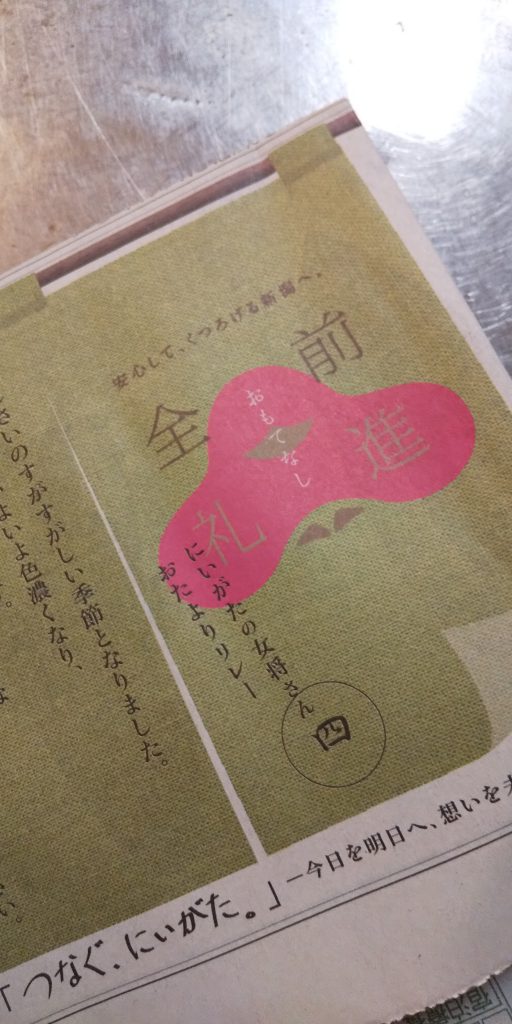 安心して、くつろげる新潟へ。
前進
全礼
おもてなし
にいがたの女将さん
おたよりリレー
四
さいのすがすがしい季節となりました。
よいよ色濃くなり、
「つなぐ、にいがた。」―今日を明日へ、想いを
宿泊